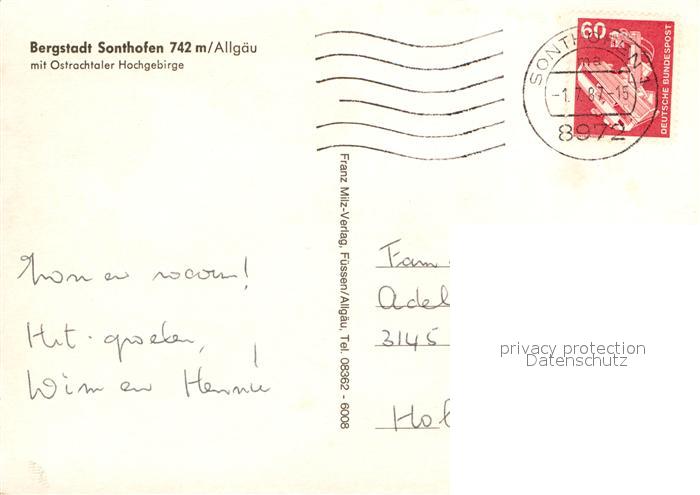 Bergstadt Sonthofen 742 m/Allgäu
mit Ostrachtaler Hochgebirge
60
DEUTSCHE BUNDESPOST
SONTHOFEN 1
-1.7.87-15
8972
Franz Milz-Verlag, Füssen/Allgäu, Tel. 08362 - 6008
en
Hrt. groeten,
Wim en Hennie
Fam
Adel
3145
Hol
privacy protection
Datenschutz